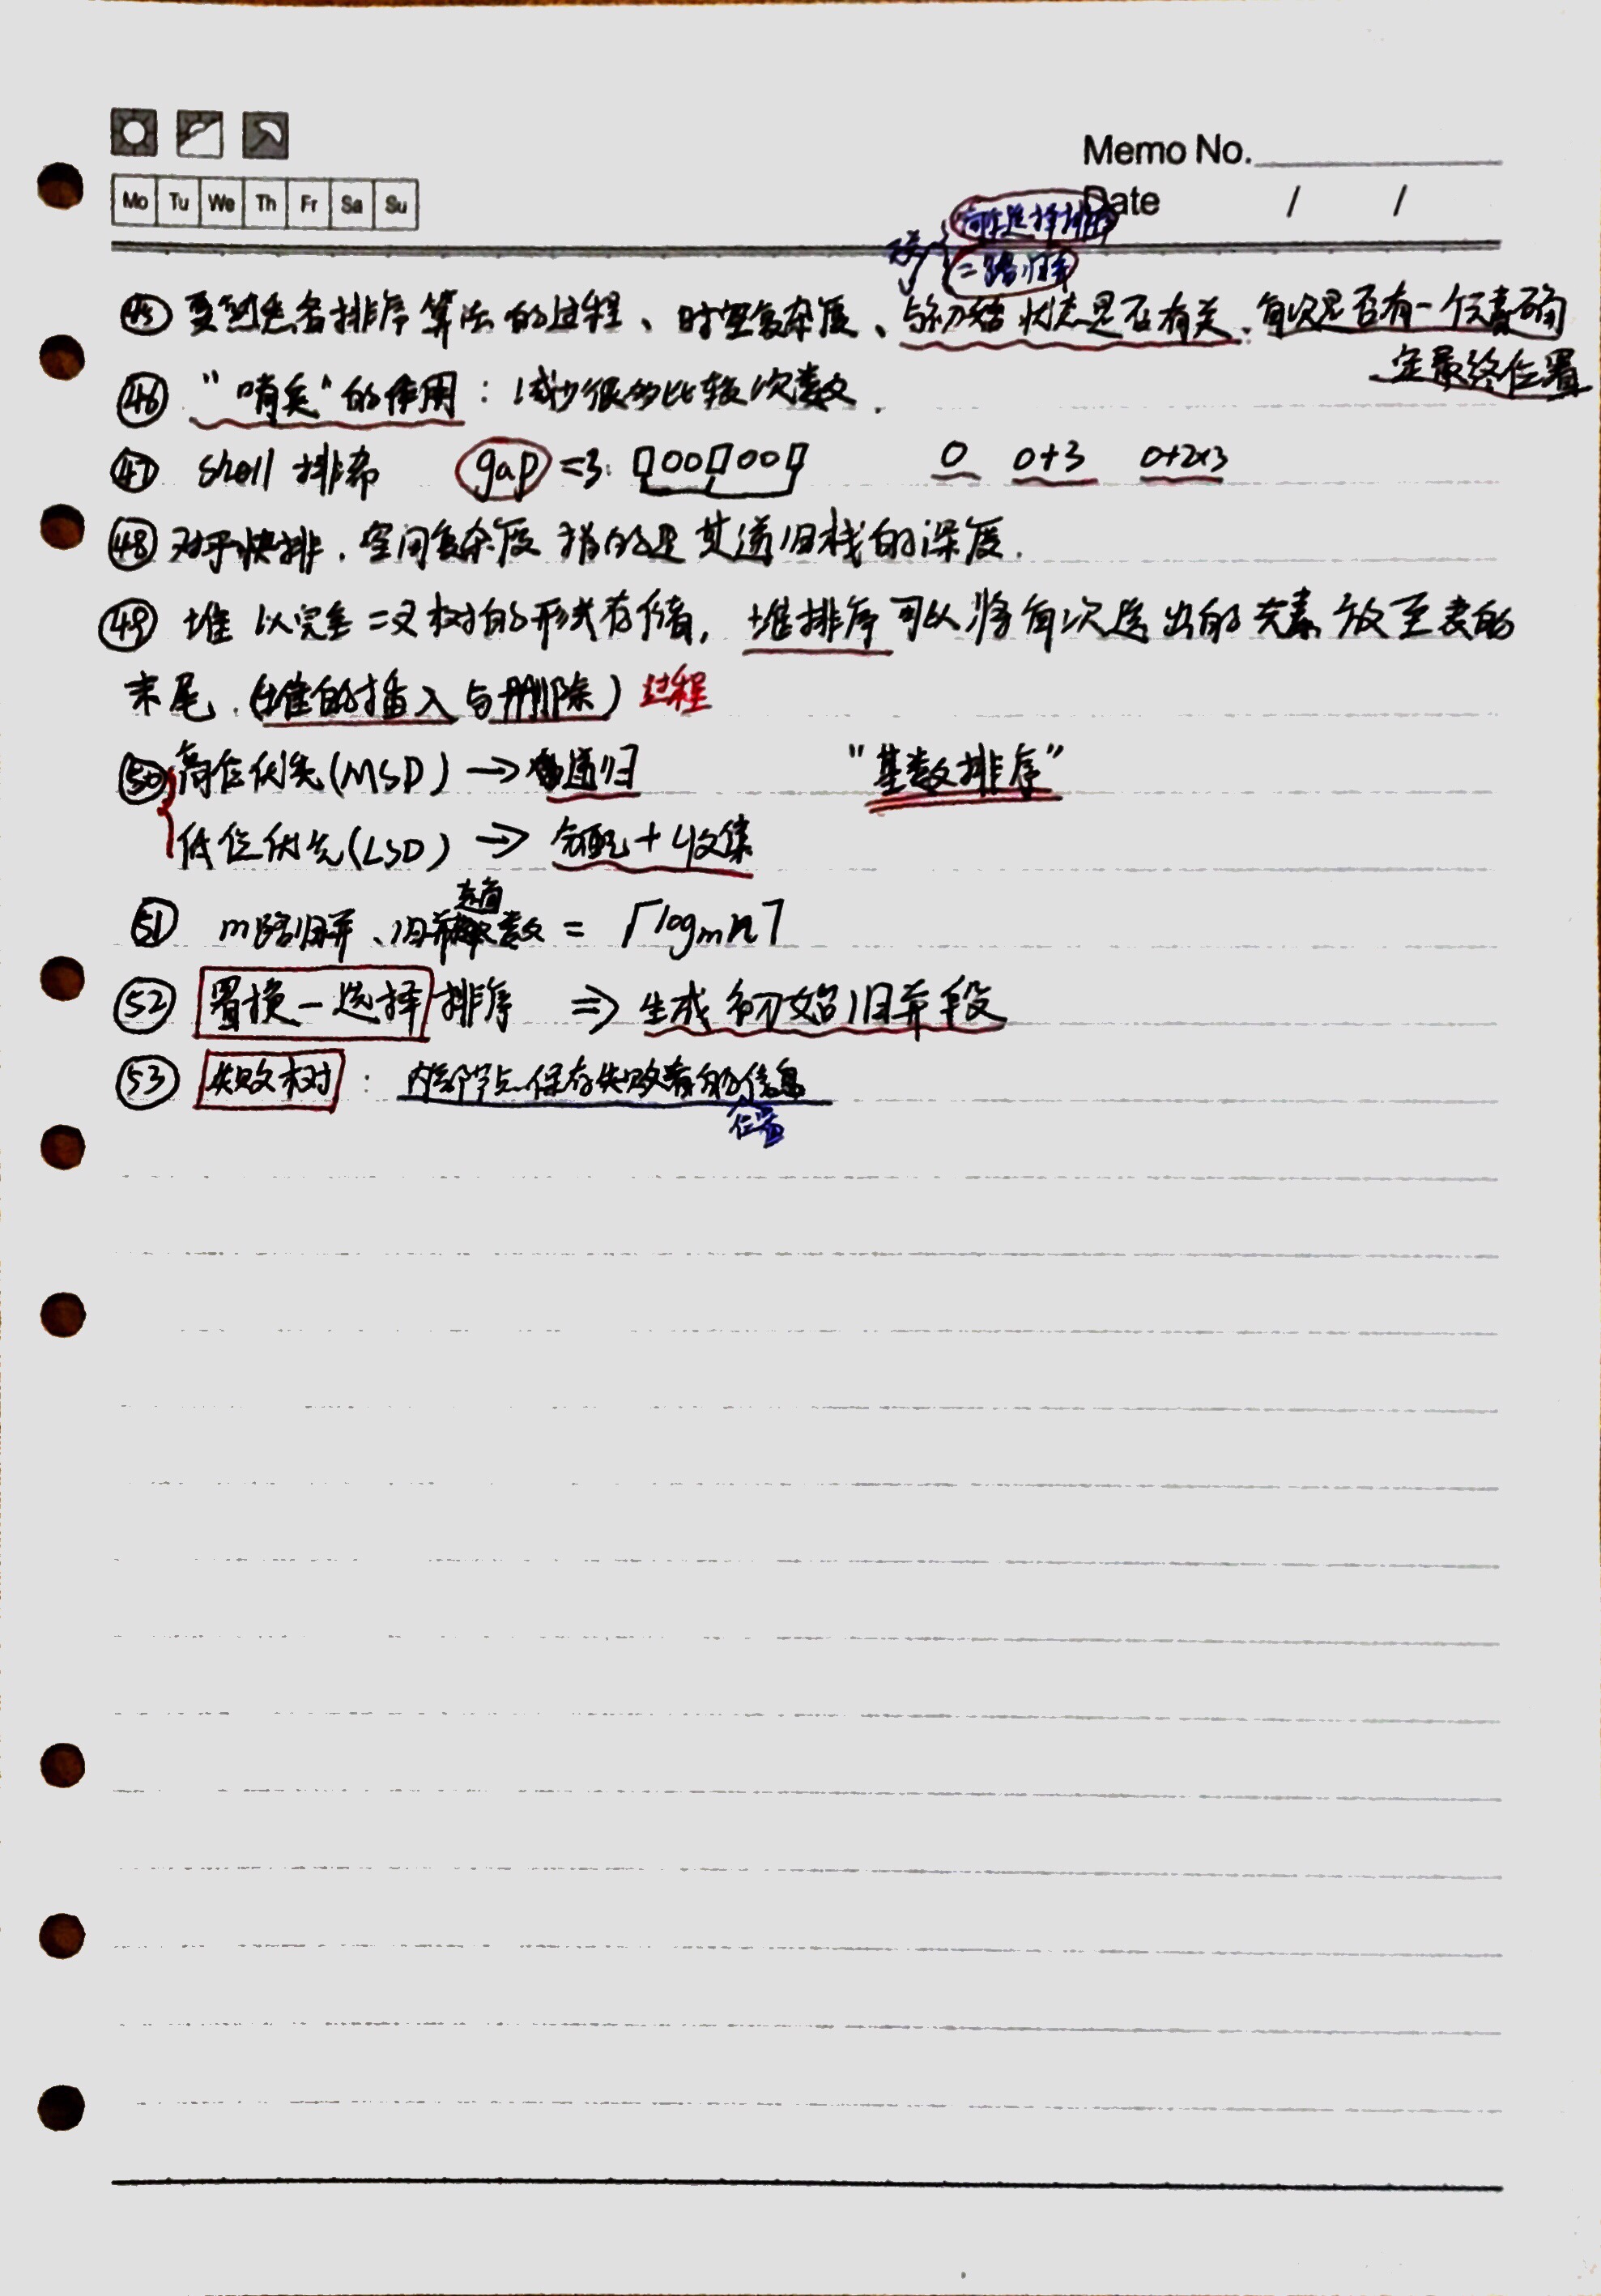 Memo No.
Mo Tu We Th Fr Sa Su
Date / /
简单选择排序
二路归并
㊺ 要熟悉各排序算法的过程、时空复杂度、与初始状态是否有关、每次是否有一个元素确
定最终位置
㊻ “哨兵”的作用：减少很多比较次数.
㊼ shell 排序 gap=3: 0 0+3 0+2×3
㊽ 对于快排，空间复杂度指的是其递归栈的深度.
㊾ 堆以完全二叉树的形式存储，堆排序可以将每次选出的元素放至表的
末尾.(堆的插入与删除) 过程
㊿ 高位优先(MSD) → 递归 “基数排序”
低位优先(LSD) → 分配+收集
走向
51 m路归并、归并数 = ⌈logₘn⌉
52 置换-选择排序 ⇒ 生成初始归并段
53 失败树: 内部节点保存失败者的信息
位置